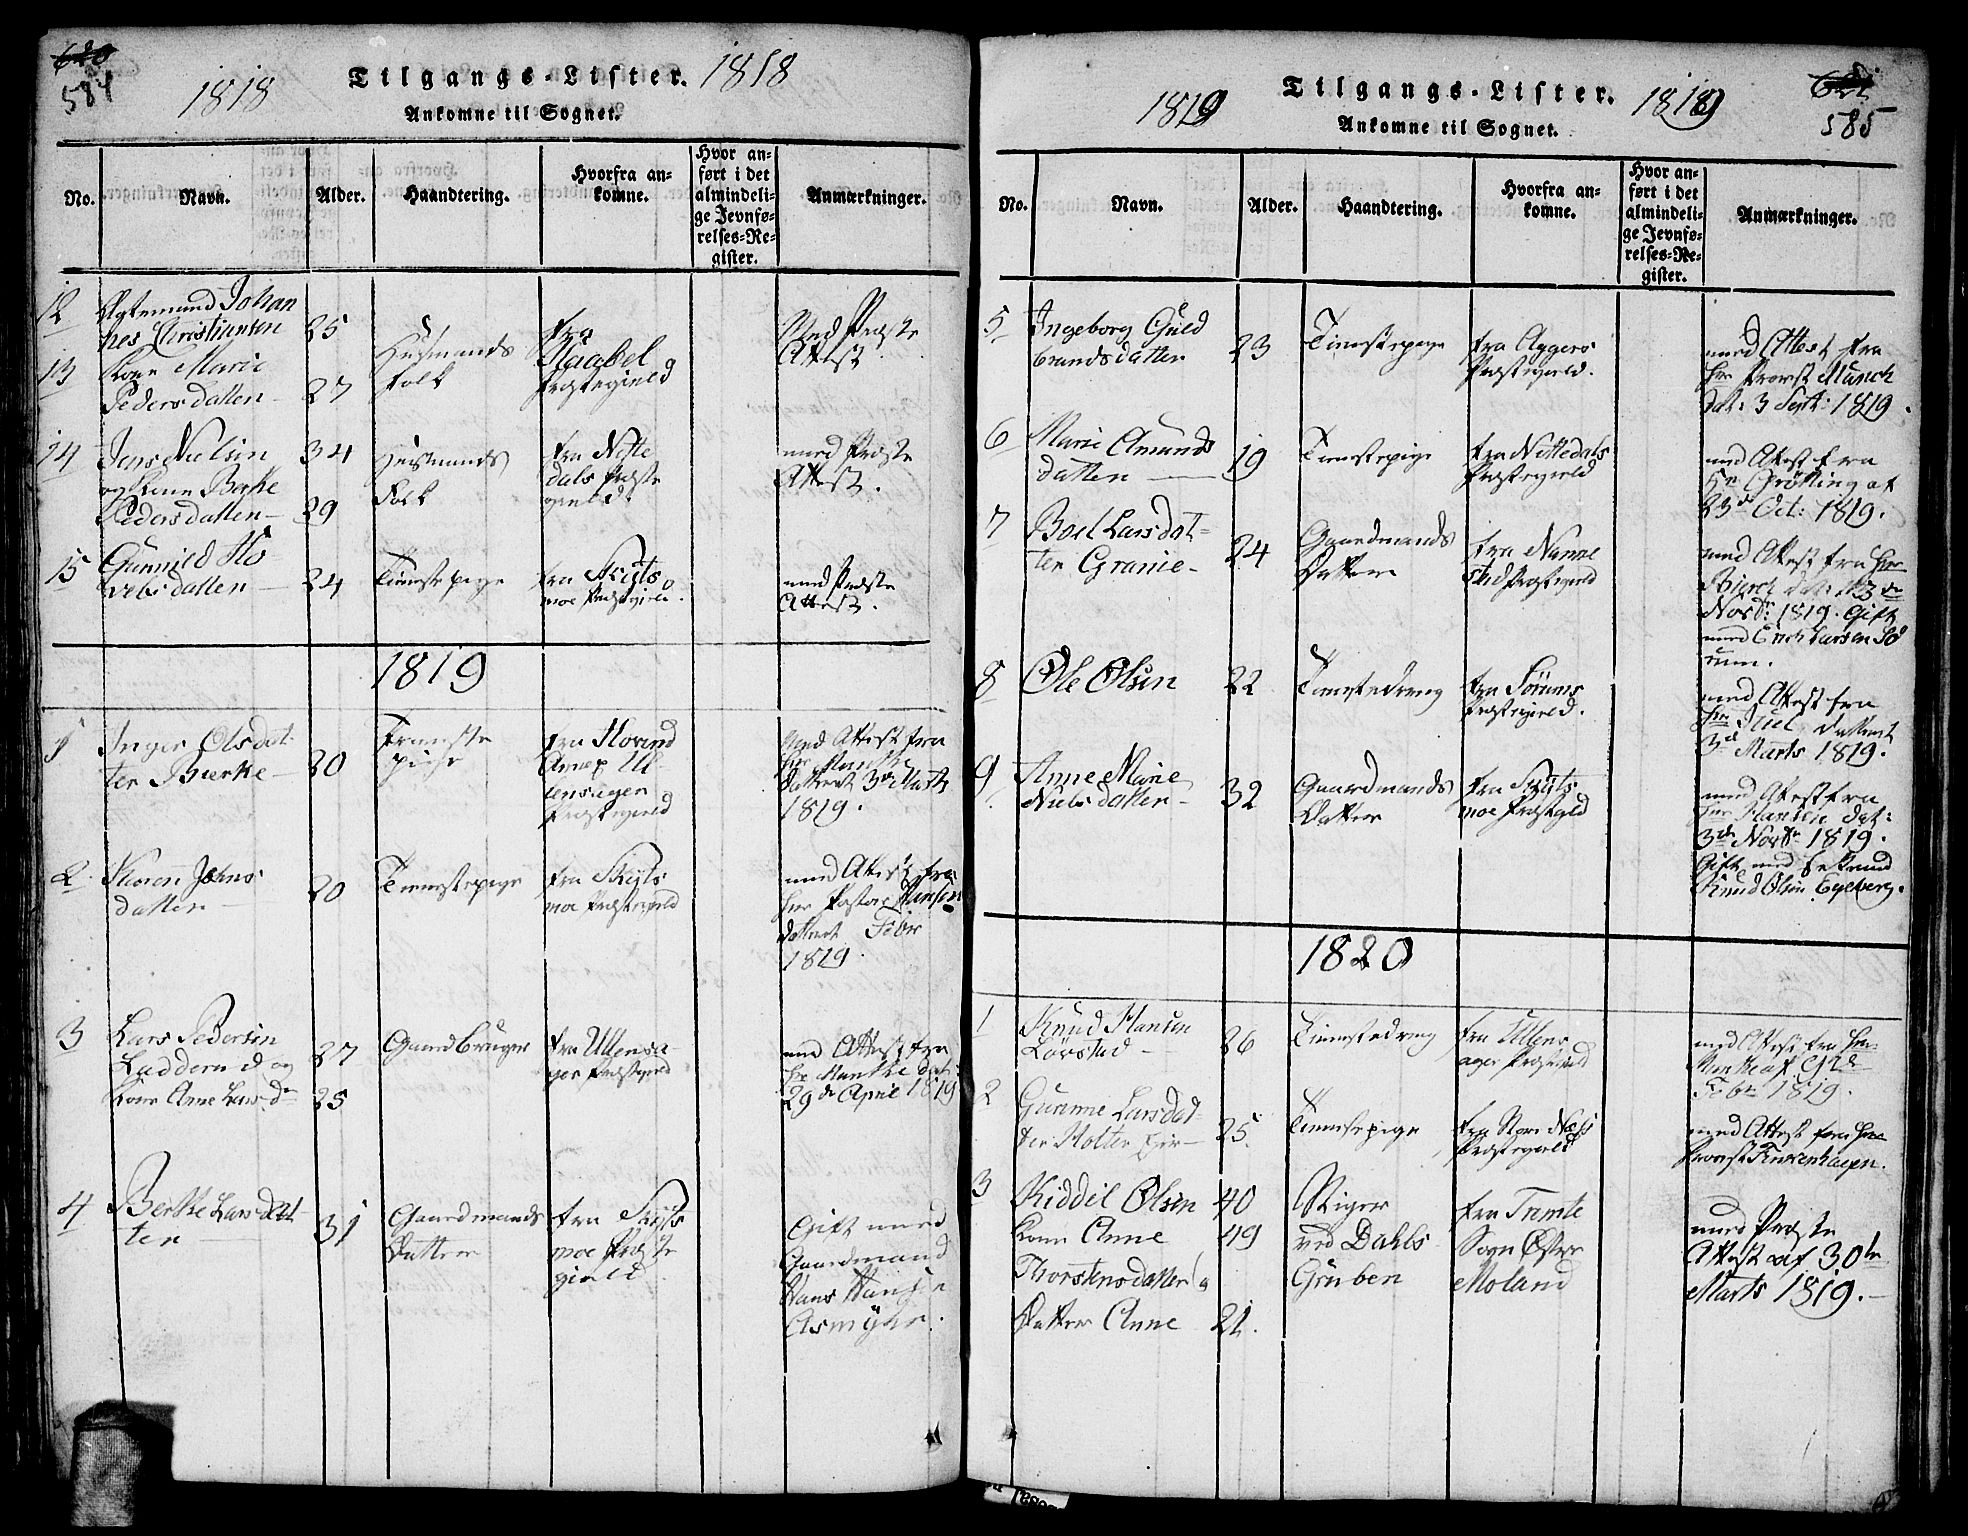 620
584
1818
Tilgangs-Lister.
1818
Ankomne til Sognet.
No.
Navn.
Alder.
Haandtering.
Hvorfra an-
komne.
Hvor an-
ført i det
almindeli-
ge Jevnfø-
relses-Re-
gister.
Anmærkninger.
12
Johan
nes Christiansen
25
Huusmands
Folk
fra
Præstegield
Med Præste
Attest
13
Kone Marie
Pedersdatten
27
14
Jens Nielsen
34
Huusmands
Folk
fra Nitte
dals Præste
gield
med Præste
Attest.
og Kone Berte
Pedersdatten
29
15
Gunnild Ho
velsdatten
24
Tienestepige
fra Skyts
moe Præstegield.
med Præste
Attest.
1819
1
Inger Olsdat
ter Bierke
20
Tieneste
pige
fra Hovind
Annex Ul
lensager
Præstegield
Med Attest fra
Hr Munthe
Datteret 3de Marts
1819.
2
Karen Johns
datten
20
Tienestepige
fra Skyts
moe Præstegield
med Attest fra
Hr Pastor Hansen
datteret Febr
1819.
3
Lars Pedersen
Ladderud og
27
Gaardbruger
fra Ullensa-
ger Præstegield
med Attest fra
Hr Munthe dat:
29de April 1819
Kone Anne Larsd
25
4
Berthe Larsdat
ter
31
Gaardmands
Datter
fra Skyts
moe Præste
gield
Gift med
Gaardmand
Hans Hansen
Asmyhr.
1819
Tilgangs-Lister.
1819
621
585
Ankomne til Sognet.
No.
Navn.
Alder.
Haandtering.
Hvorfra an-
komne.
Hvor an-
ført i det
almindeli-
ge Jevnfø-
relses-Re-
gister.
Anmærkninger.
5
Ingeborg Guld
brandsdatten
23
Tienestepige
fra Aggers
Præstegield.
med Attest fra
Hr Provst Munch
dat: 3 Sept: 1819.
6
Marie Amunds
datten
19
Tienestepige
fra Nittedals
Præstegield
med Attest fra
Hr Grötting af
23de Oct: 1819.
7
Boel Larsdat-
ter Granie
24
Gaardmands
Datter
fra Nanne
stad Præstegield
med Attest fra Hr
Bierch dat: 23de
Novbr 1819. Gift
med Erich Larsen Sö
rum.
8
Ole Olsen
22
Tienestedreng
fra Sørums
Præstegield.
med Attest fra
Hr Juel datteret
3de Marts 1819.
9
Anne Marie
Nielsdatten
32
Gaardmands
Datter
fra Skyts
moe Præstgield
med Attest fra
Hr Hansen dat:
3de Novbr 1819.
Gift med
Knud Olsen Egeberg.
1820
1
Knud Hansen
Lörstad
26
Tienestedreng
fra Ullens
ager Præstegield
med Attest fra Hr
Munthe af
Febr 1819.
2
Gunnne Larsdat
ter Holter
25.
Tienestepige
fra Store Næss
Præstegield
med Attest fra Hr
Provst Finkenhagen.
3
Kiddil Olsen
40
Stiger
ved Dahls
Gruben
fra Tromte
Sogn Østre
Moland
med Præste
Attest af 30te
Marts 1819.
Kone Anne
49
Thorstensdatter og
Datter Anne
21.